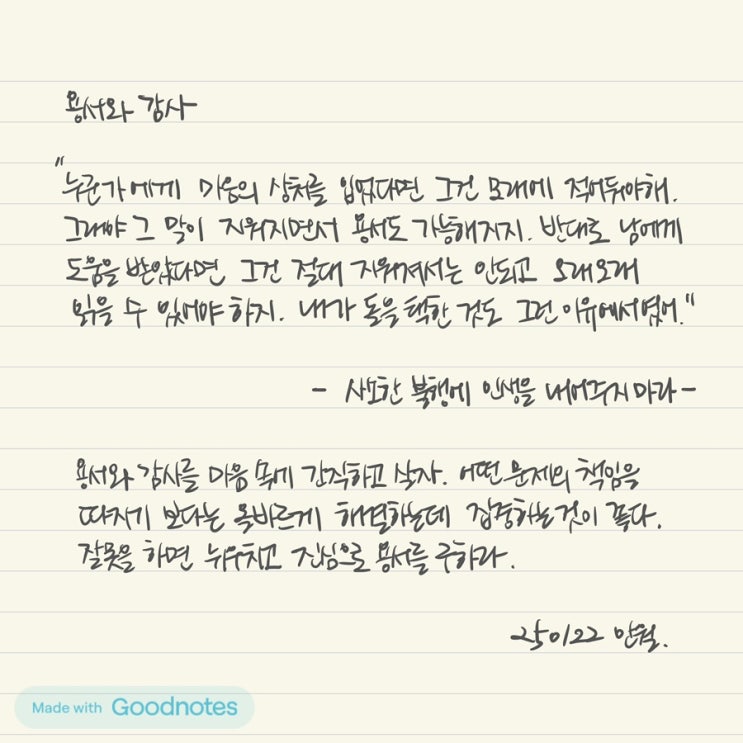 용서와 감사
"누군가에게 마음의 상처를 입었다면 그건 모래에 적어둬야해.
그래야 그 말이 지워지면서 용서도 가능해지지. 반대로 남에게
도움을 받았다면 그건 절대 지워져서는 안되고 오래오래
읽을 수 있어야 하지. 내가 돌을 택한 것도 그런 이유에서였어."
- 사소한 불행에 인생을 내어주지마라 -
용서와 감사를 마음 속에 간직하고 살자. 어떤 문제의 책임을
따지기 보다는 올바르게 해결하는데 집중하는것이 좋다.
잘못을 하면 뉘우치고 진심으로 용서를 구하라.
250122
Made with Goodnotes